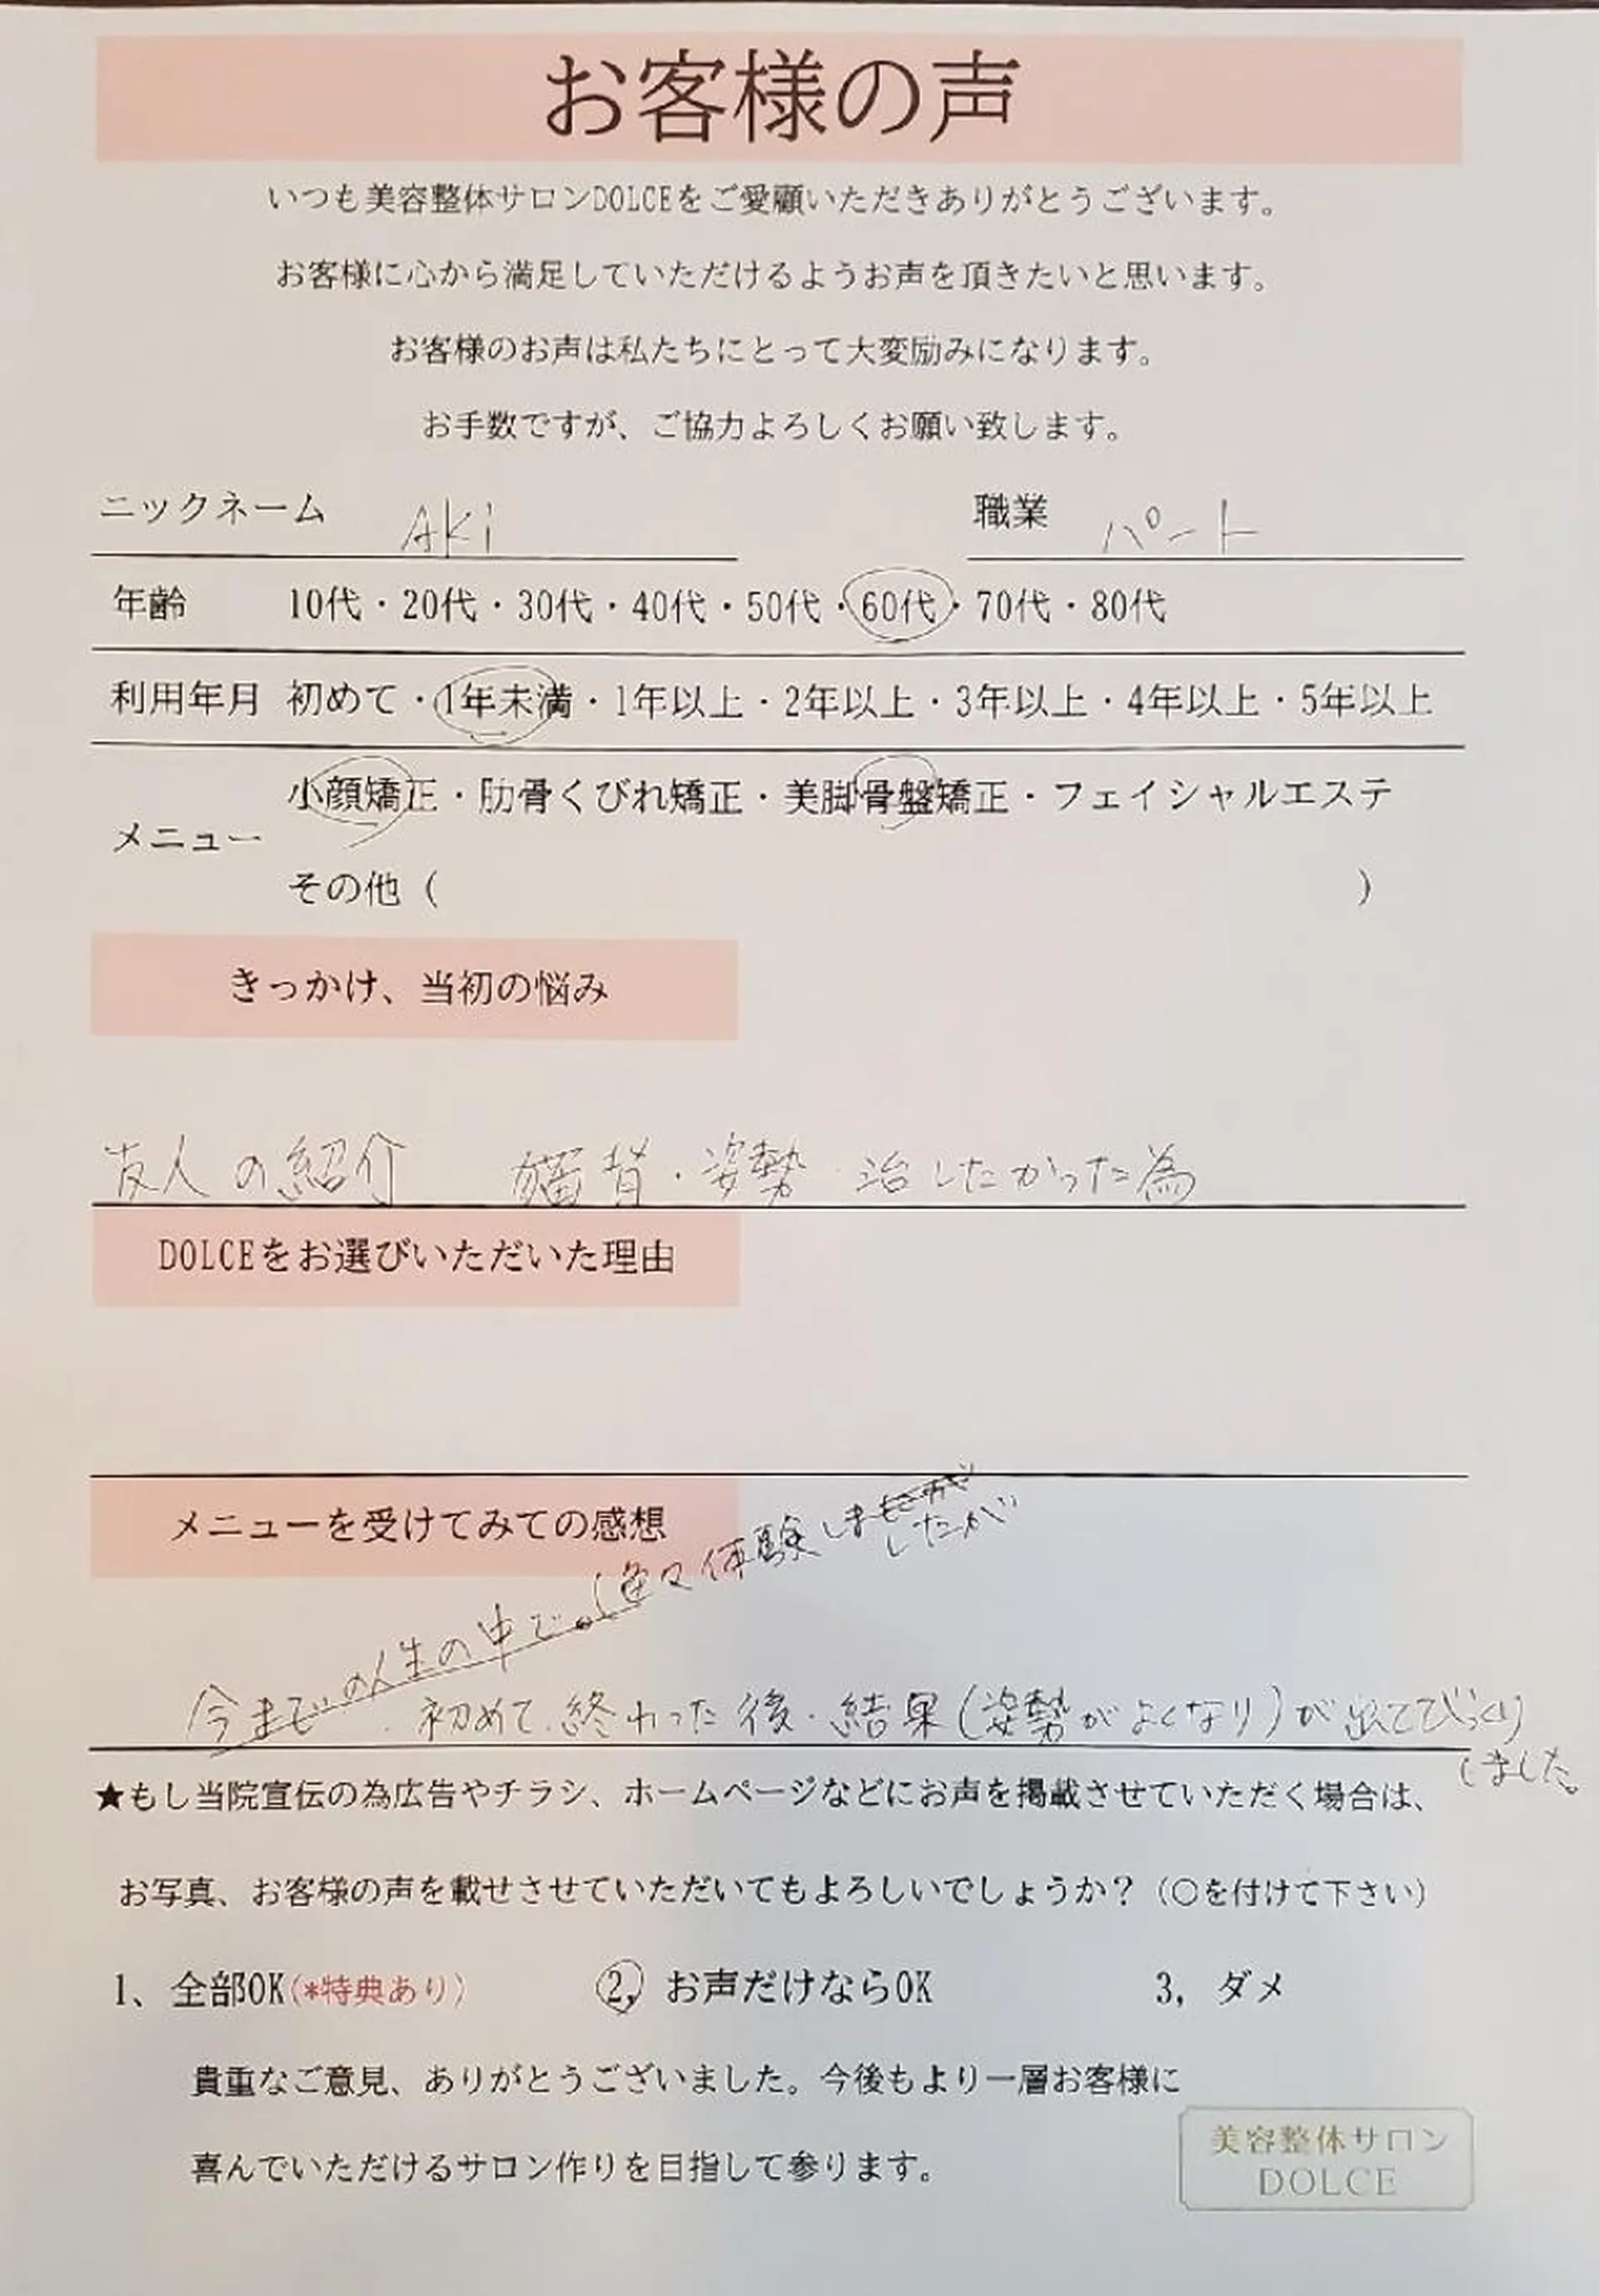 お客様の声
いつも美容整体サロンDOLCEをご愛顧いただきありがとうございます。
お客様に心から満足していただけるようお声を頂きたいと思います。
お客様のお声は私たちにとって大変励みになります。
お手数ですが、ご協力よろしくお願い致します。
ニックネーム Aki 職業 パート
年齢 10代・20代・30代・40代・50代・60代・70代・80代
利用年月 初めて・1年未満・1年以上・2年以上・3年以上・4年以上・5年以上
小顔矯正・肋骨くびれ矯正・美脚骨盤矯正・フェイシャルエステ
メニュー
その他（ ）
きっかけ、当初の悩み
友人の紹介 猫背・姿勢 治したかった為
DOLCEをお選びいただいた理由
メニューを受けてみての感想
今までの人生の中で。色々体験しま
したが
初めて、終わった後・結果(姿勢がよくなり)が出てびっくり
しました。
★もし当院宣伝の為広告やチラシ、ホームページなどにお声を掲載させていただく場合は、
お写真、お客様の声を載せさせていただいてもよろしいでしょうか？（〇を付けて下さい）
1、全部OK(*特典あり) 2, お声だけならOK 3, ダメ
貴重なご意見、ありがとうございました。今後もより一層お客様に
喜んでいただけるサロン作りを目指して参ります。
美容整体サロン
DOLCE